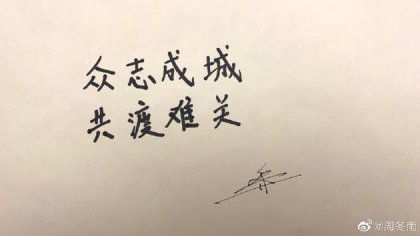 众志成城
共渡难关
@周冬雨